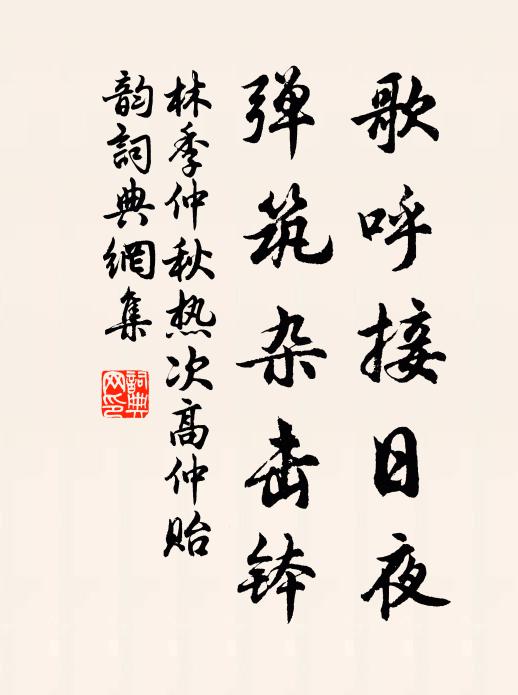 歌呼接日夜
弹筑杂击钵
林季仲秋热次高仲贻
韵词典網集
詞典網印